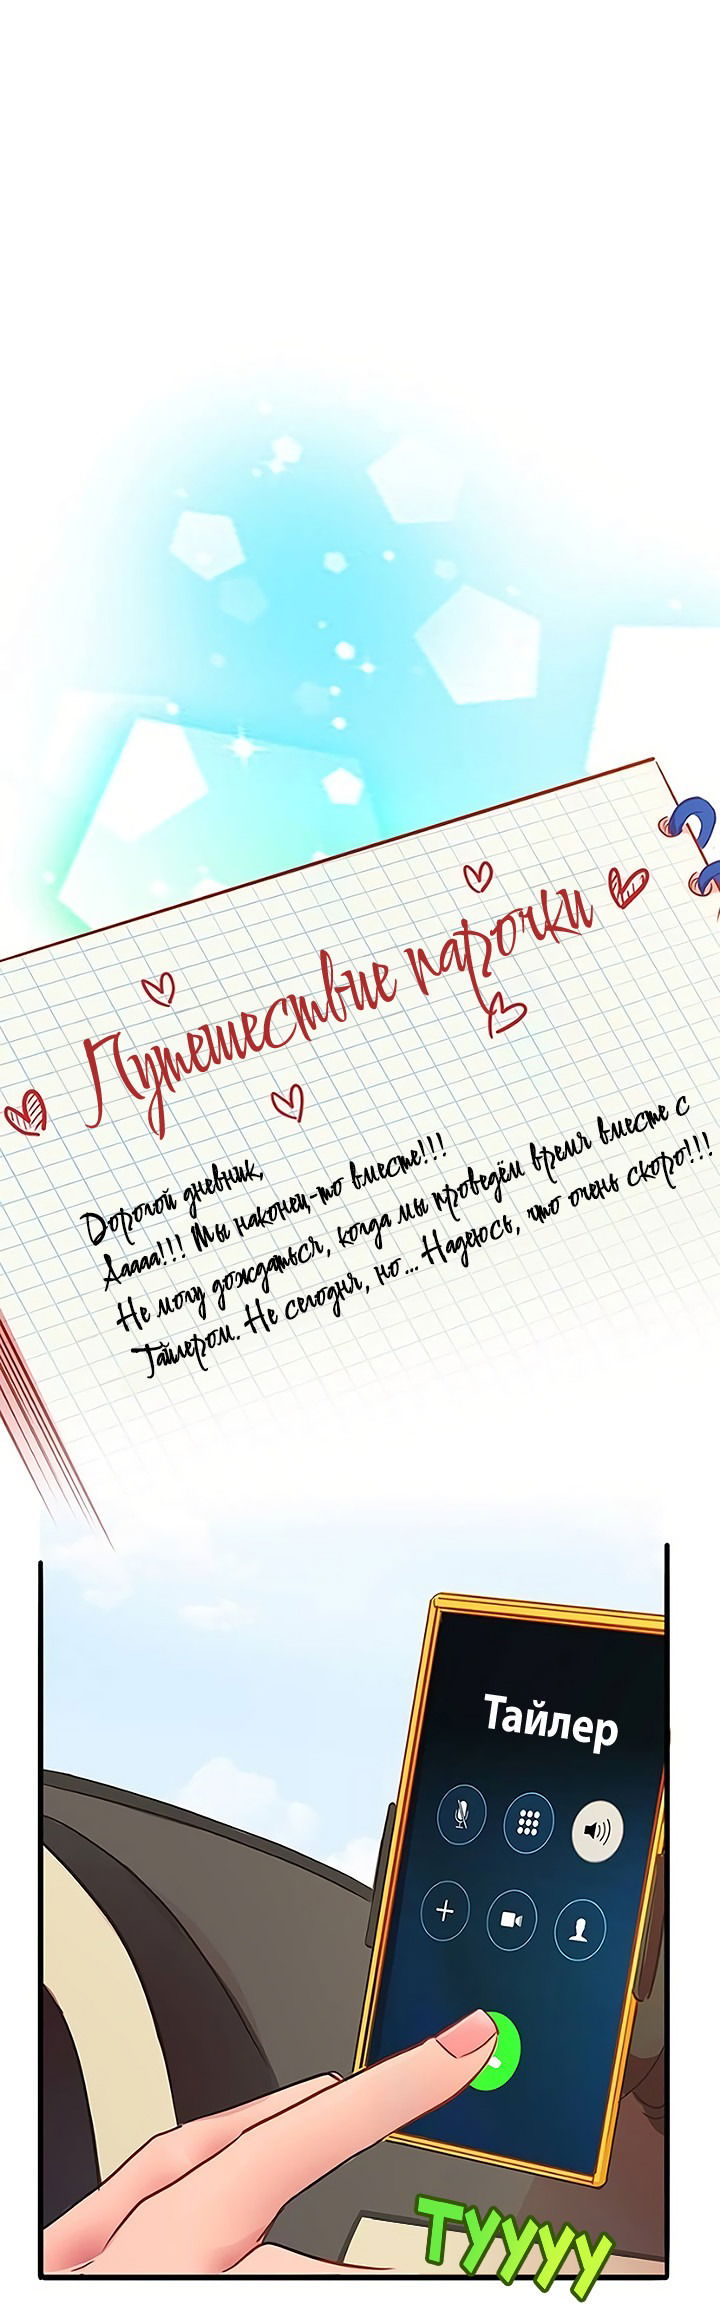 Путешествие парочки
Дорогой дневник,
Ааааа!!! Мы наконец-то вместе!!!
Не могу дождаться, когда мы проведём время вместе с
Тайлером. Не сегодня, но... Надеюсь, что очень скоро!!!
Тайлер
ТУУУУ